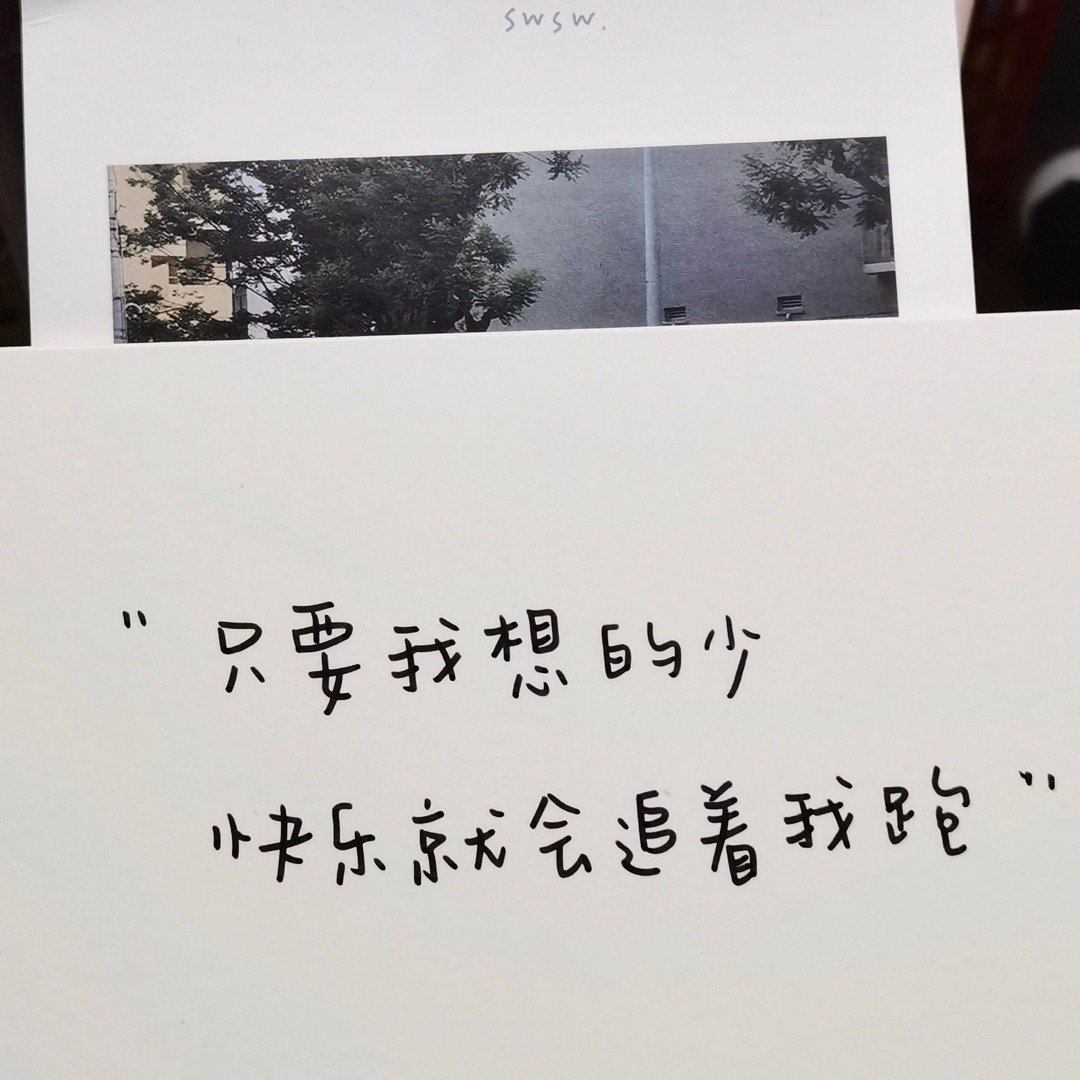 swsw.
" 只要我想的少
快乐就会追着我跑 "